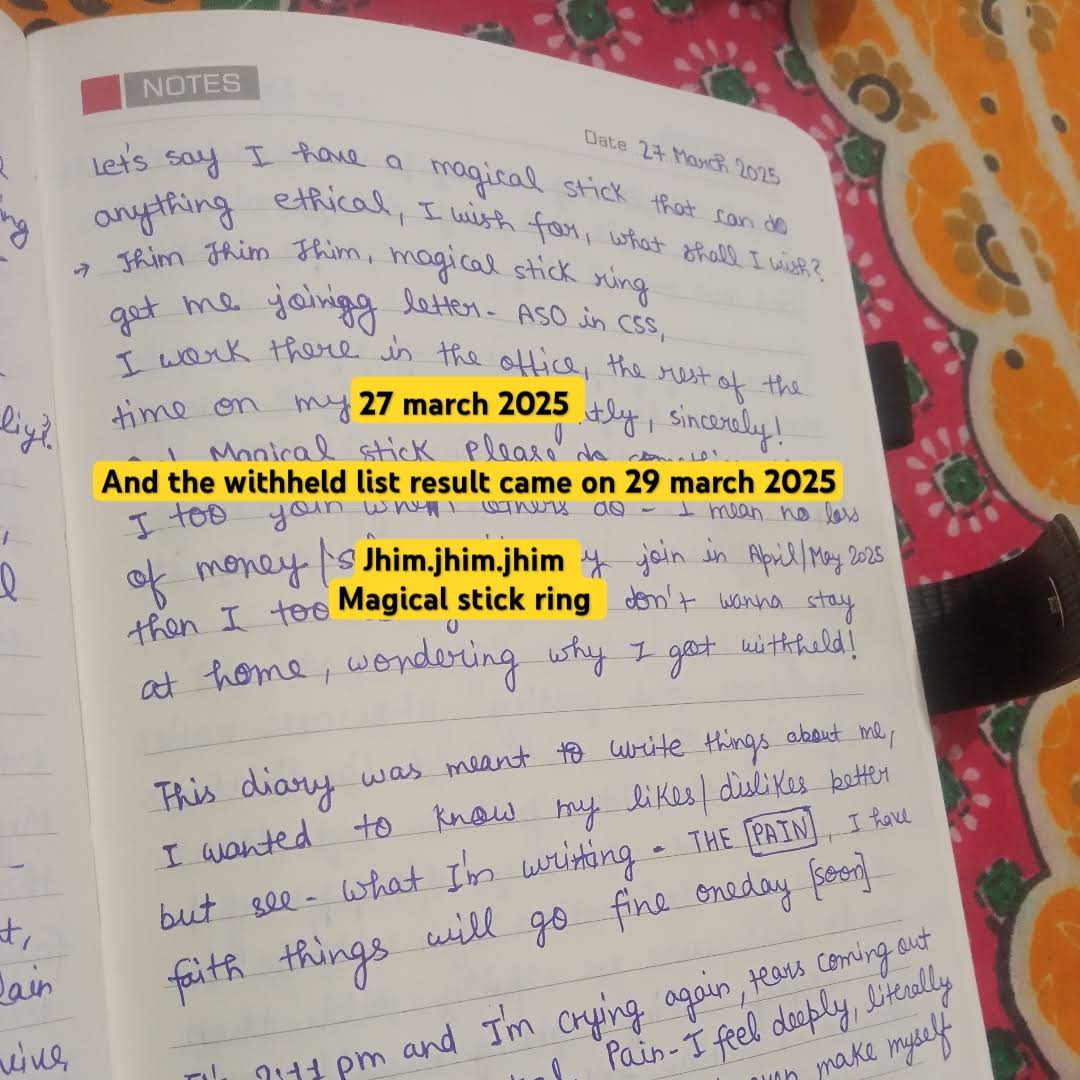 NOTES
Date 27 March 2025
Let's say I have a magical stick that can do
anything ethical, I wish for, what shall I wish?
→ Jhim Jhim Jhim, magical stick ring
get me joinigg letter - ASO in CSS,
I work there in the office, the rest of the
time on my
27 march 2025
tly, sincerely!
Magical stick please do
And the withheld list result came on 29 march 2025
I too join when others do - I mean no loss
of money/s
Jhim.jhim.jhim
y join in April/May 2025
then I too
Magical stick ring
don't wanna stay
at home, wondering why I got withheld!
This diary was meant to write things about me,
I wanted to know my likes/dislikes better
but see - what I'm writing - THE [PAIN], I have
faith things will go fine oneday [soon]
2:11 pm and I'm crying again, tears coming out
Pain - I feel deeply, literally
make myself